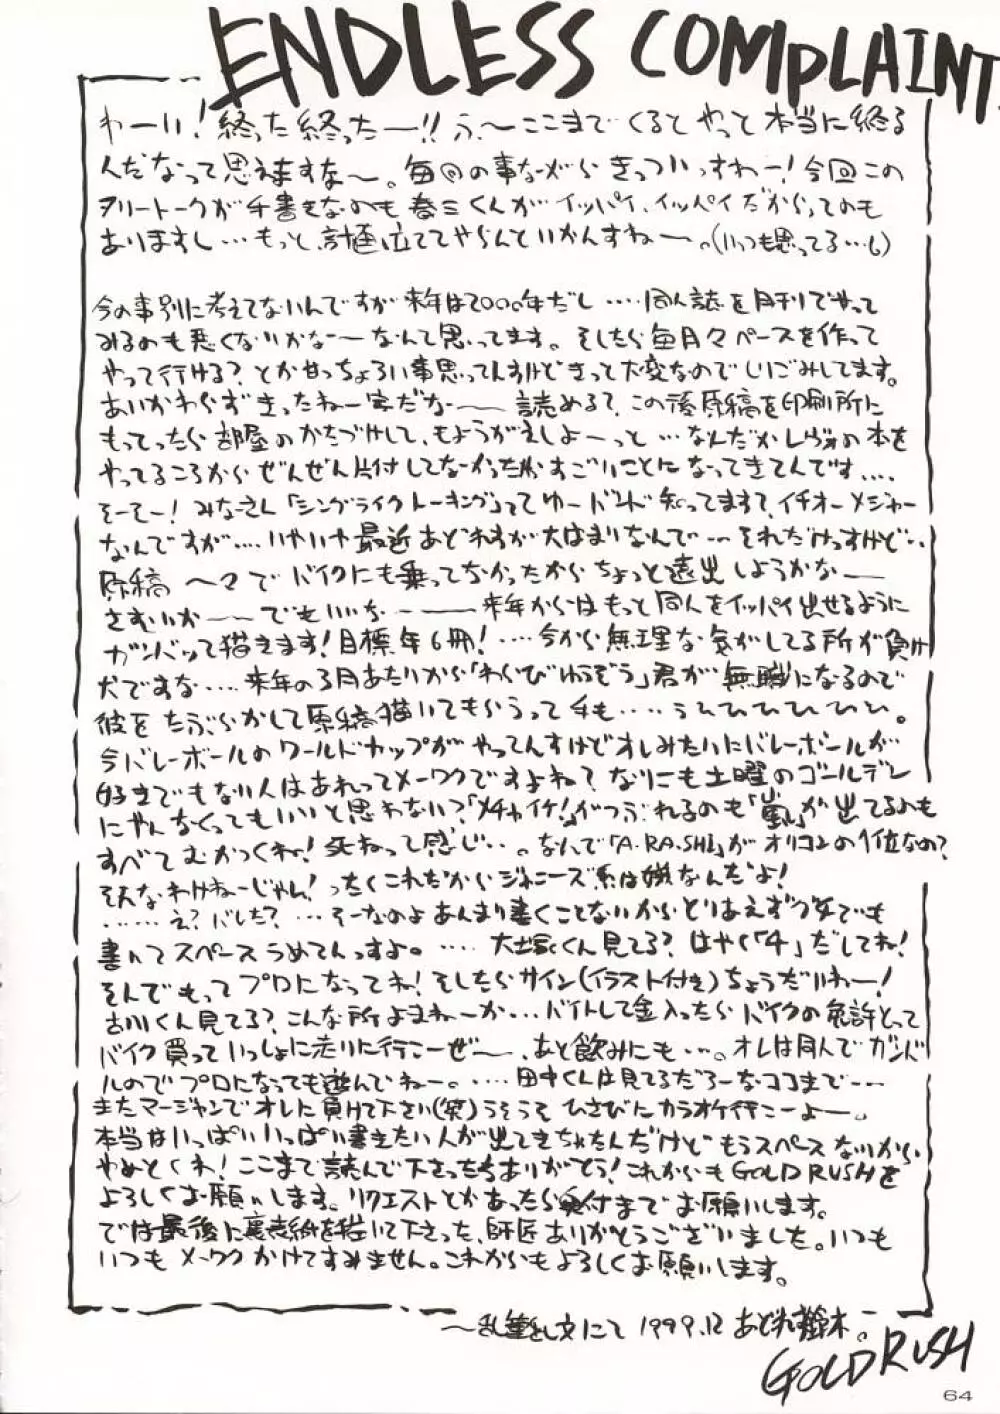 ENDLESS COMPLAINT
わーい!終った終ったー!!ふ〜ここまでくるとやっと本当に終る
んだなって思えますな〜。毎回の事ながらきっついっすわー!今回この
フリートークが手書きなのも春三くんがイッパイ、イッパイだからってのも
ありますし…もっと、計画立ててやらんといかんすねー。(いつも思ってる…し)
今の事別に考えてないんですが来年は2000年だし….同人誌を月刊でやって
みるのも悪くないかな〜なんて思ってます。そしたら毎月々ペースを作って
やって行ける?とか甘っちょろい事思ってんすけどきっと大変なのでしりごみしてます。
あいかわらずきったねー字だなー読めるて?この後原稿を印刷所に
もってったら部屋のかたづけして、もようがえしよーっと…なんだかレヴォの本を
やってるころからぜんぜん片付してなかったからすごいことになってきてんです….
そーそー!みなさん「シングライクトーキング」ってゆーバンド知ってます?イチオーメジャー
なんですが….いやいや最近あどれすが大はまりなんで…それだけっすけど…
原稿〜々でバイクにも乗ってなかったからちょっと遠出しようかなー
さむいかーーでもいいなーー来年からはもっと同人をイッパイ出せるように
ガンバって描きます!目標年6冊!….今から無理な気がしてる所が負け
犬ですな….来年の3月あたりから「わらびゆうぞう」君が無職になるので
彼をたぶらかして原稿描いてもらうって手も….うひひひひひひ。
今バレーボールのワールドカップがやってんすけどオレみたいにバレーボールが
好きでもない人はあれってメーワクですよね?なにも土曜のゴールデン
にやんなくってもいいと思わない?「メチャイケ!」がつぶれるのも「嵐」が出てるのも
すべてむかつくね!死ねって感じ…。なんで「A・RA・SHI」がオリコンの1位なの?
そんなわけねーじゃん!ったくこれだからジャニーズ系は嫌なんだよ!
……え?バレた?…そーなのよあんまり書くことないからとりあえずグチでも
書いてスペースうめてんっすよ。….大塚くん見てる?はやく「4」だしてね!
そんでもってプロになってね!そしたらサイン(イラスト付き)ちょうだいねー!
古川くん見てる?こんな所よまねーか…バイトして金入ったらバイクの免許とって
バイク買っていっしょに走りに行こーぜ〜、あと飲みにも…。オレは同人でガンバ
ルのでプロになっても遊んでねー。….田中くんは見てるだろーなココまで…
またマージャンでオレに負けて下さい(笑)うそうそひさびにカラオケ行こーよー。
本当はいっぱいいっぱい書きたい人が出てきちゃたんだけどもうスペースないから
やめとくね!ここまで読んで下さったちありがとう!これからもGOLD RUSHを
よろしくお願いします。リクエストとかあったら受付までお願いします。
では最後に裏表紙を描いて下さった、師匠ありがとうございました。いつも
いつもメーワクかけてすみません。これからもよろしくお願いします。
〜乱筆乱文にて 1999.12 あどれす鈴木。
GOLD RUSH
64